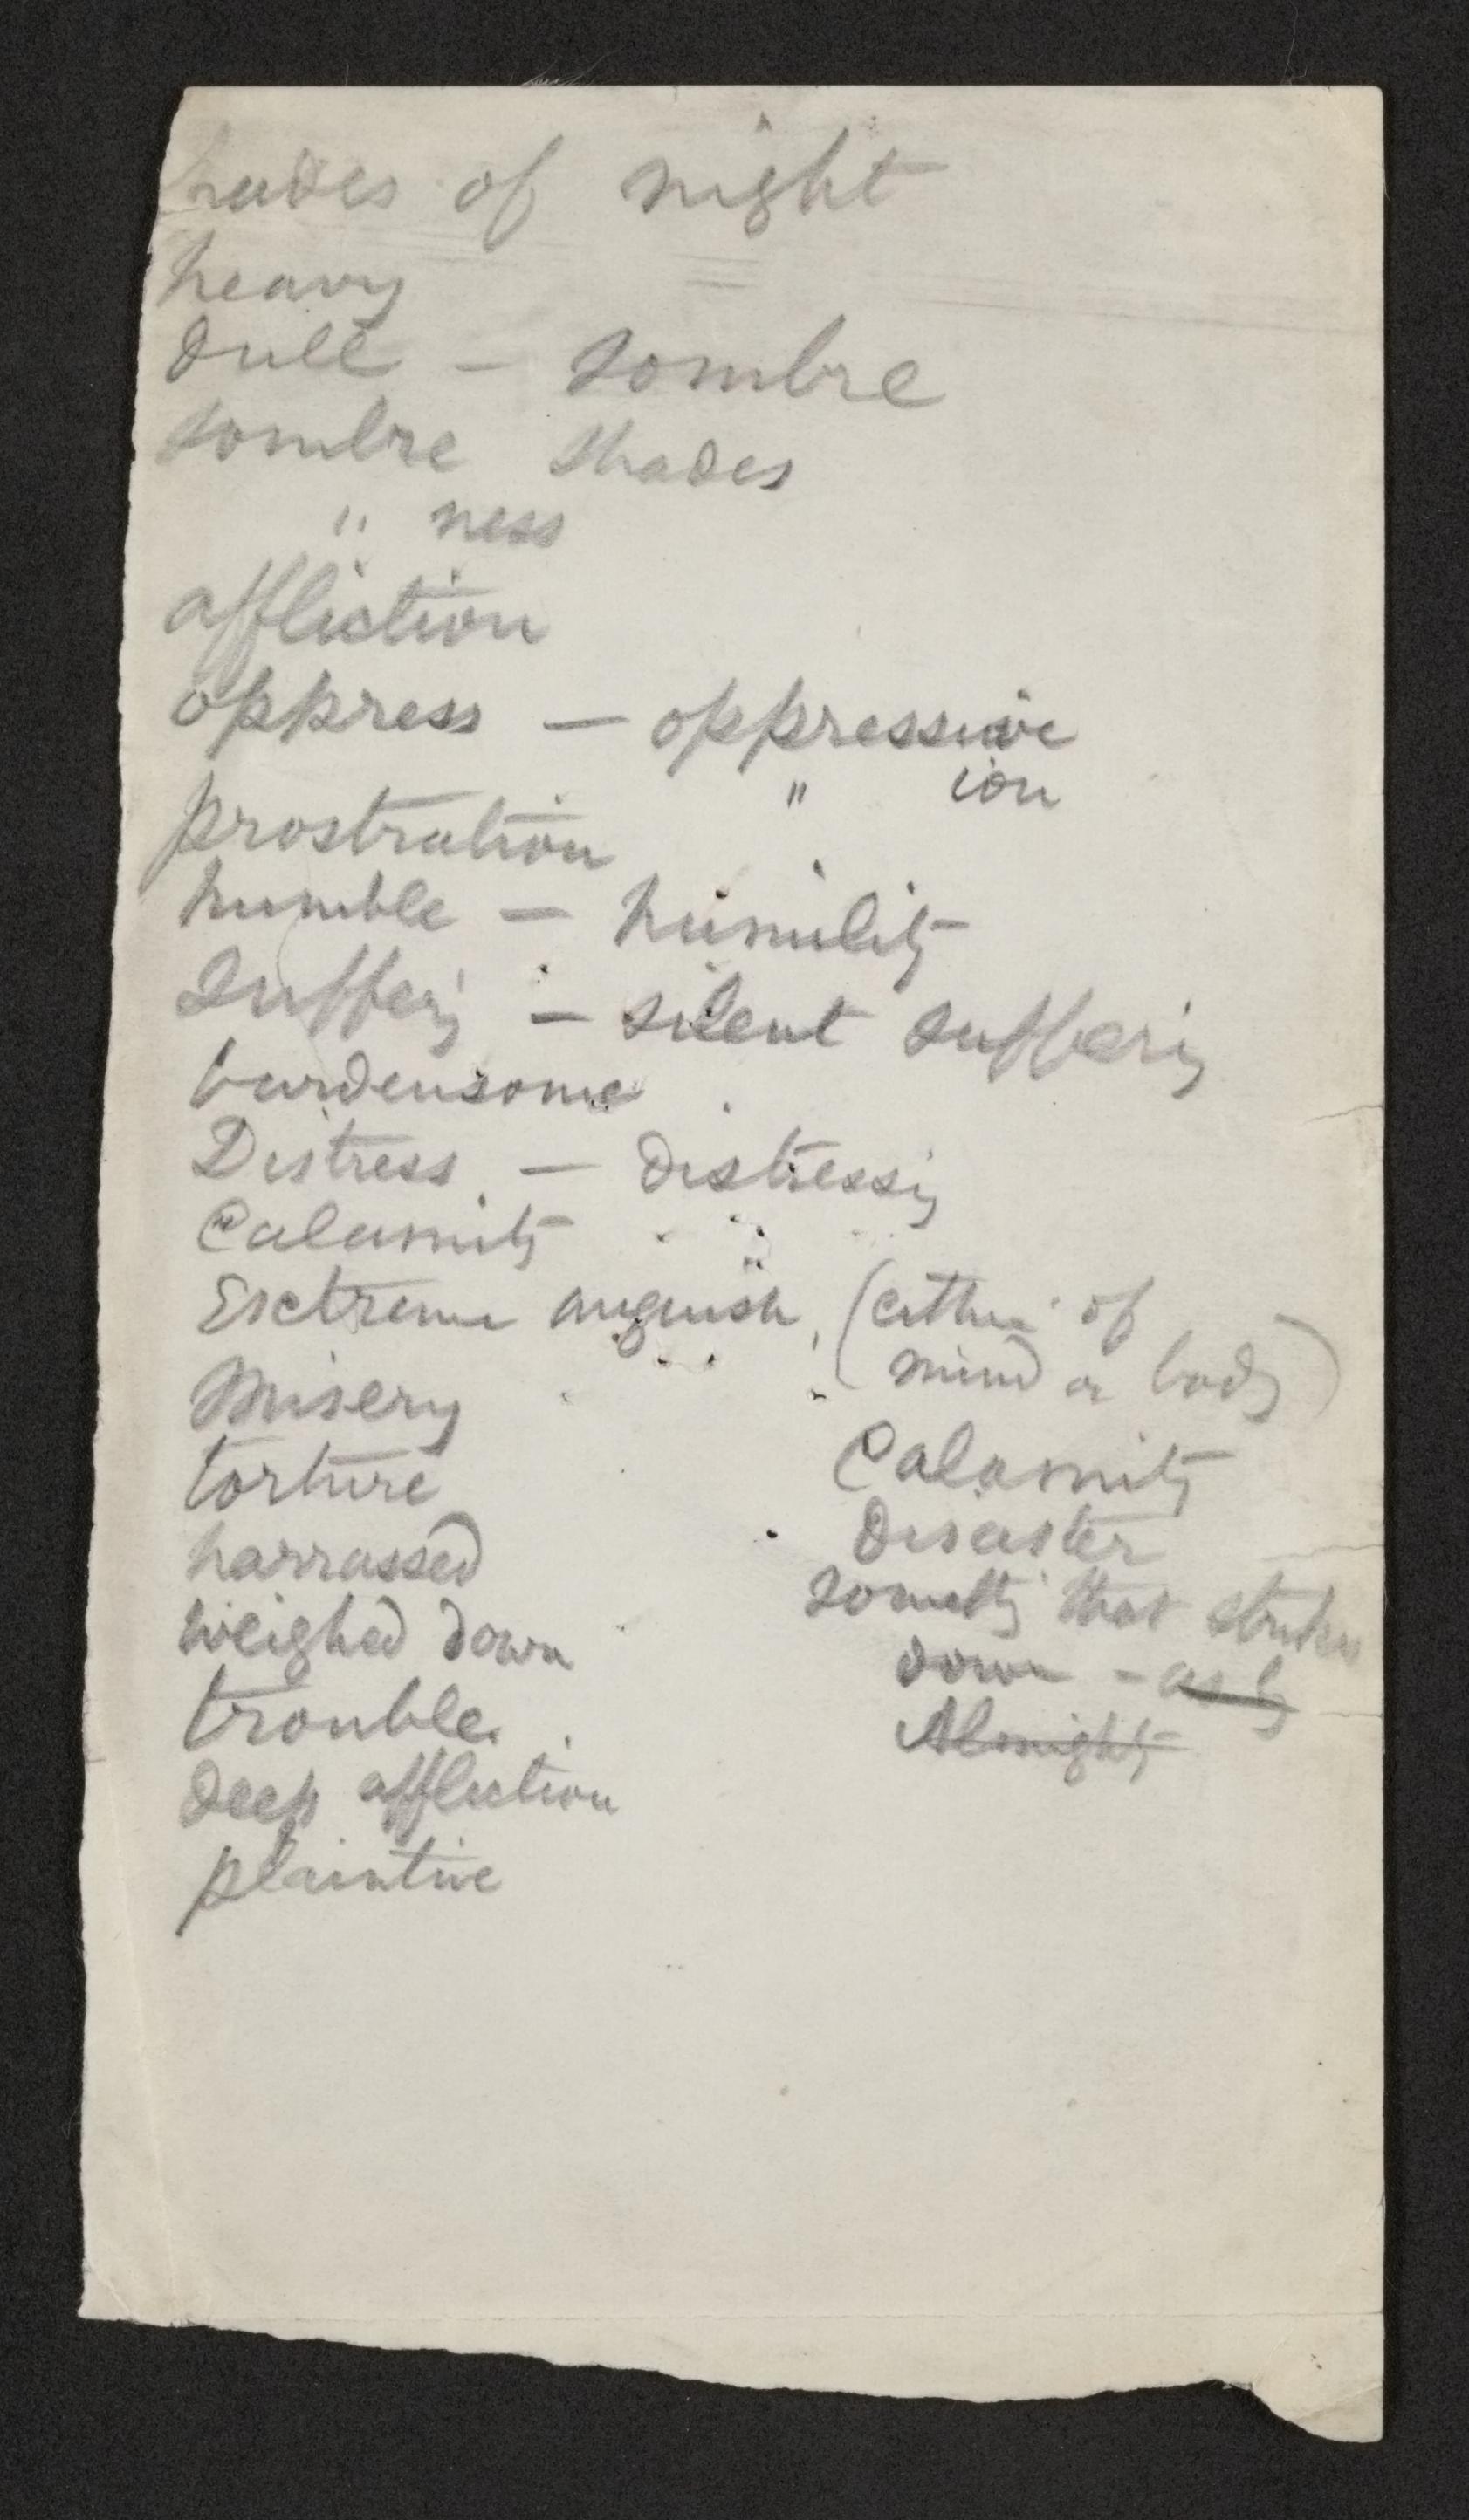 hades of night
heavy
dull — sombre
sombre shades
" ness
affliction
oppress — oppressive
" ion
prostration
humble — humility
Suffering — silent suffering
burdensome
Distress — distressing
Calamity
Extreme anguish, (either of
mind or body)
Misery
torture
harrassed
weighed down
trouble.
deep affliction
plaintive
Calamity
disaster
something that strikes
down – as by
Almighty